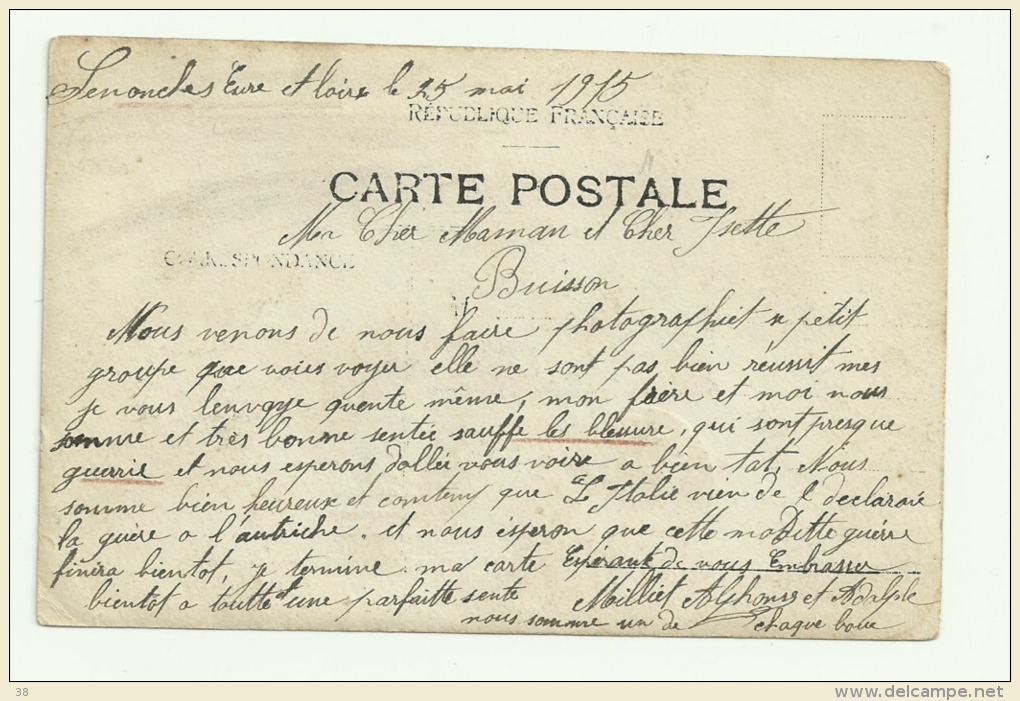 Senonches Eure et loire le 25 mai 1915
RÉPUBLIQUE FRANÇAISE
CARTE POSTALE
Mr Cher Maman et Cher Isette
CORRESPONDANCE
Buisson
Nous venons de nous faire photographiet petit
groupe que voies voyer elle ne sont pas bien réussit mes
je vous lenvoye quente même, mon frère et moi nous
somme et très bonne sentée sauffe les blessure, qui sont presque
guerrie et nous esperons dallée vous voire a bien tat. Nous
somme bien heureux et conteny que L'Italie vien de déclarée
la guère a l'autriche. et nous esperon que cette modditte guérre
finéra bientot, je termine ma carte Espérant de vous Embrasser
bientot a toutte et une parfaitte sente Milliet Alphonse et Adolple
nous somme un de chaque boue
38
www.delcampe.net